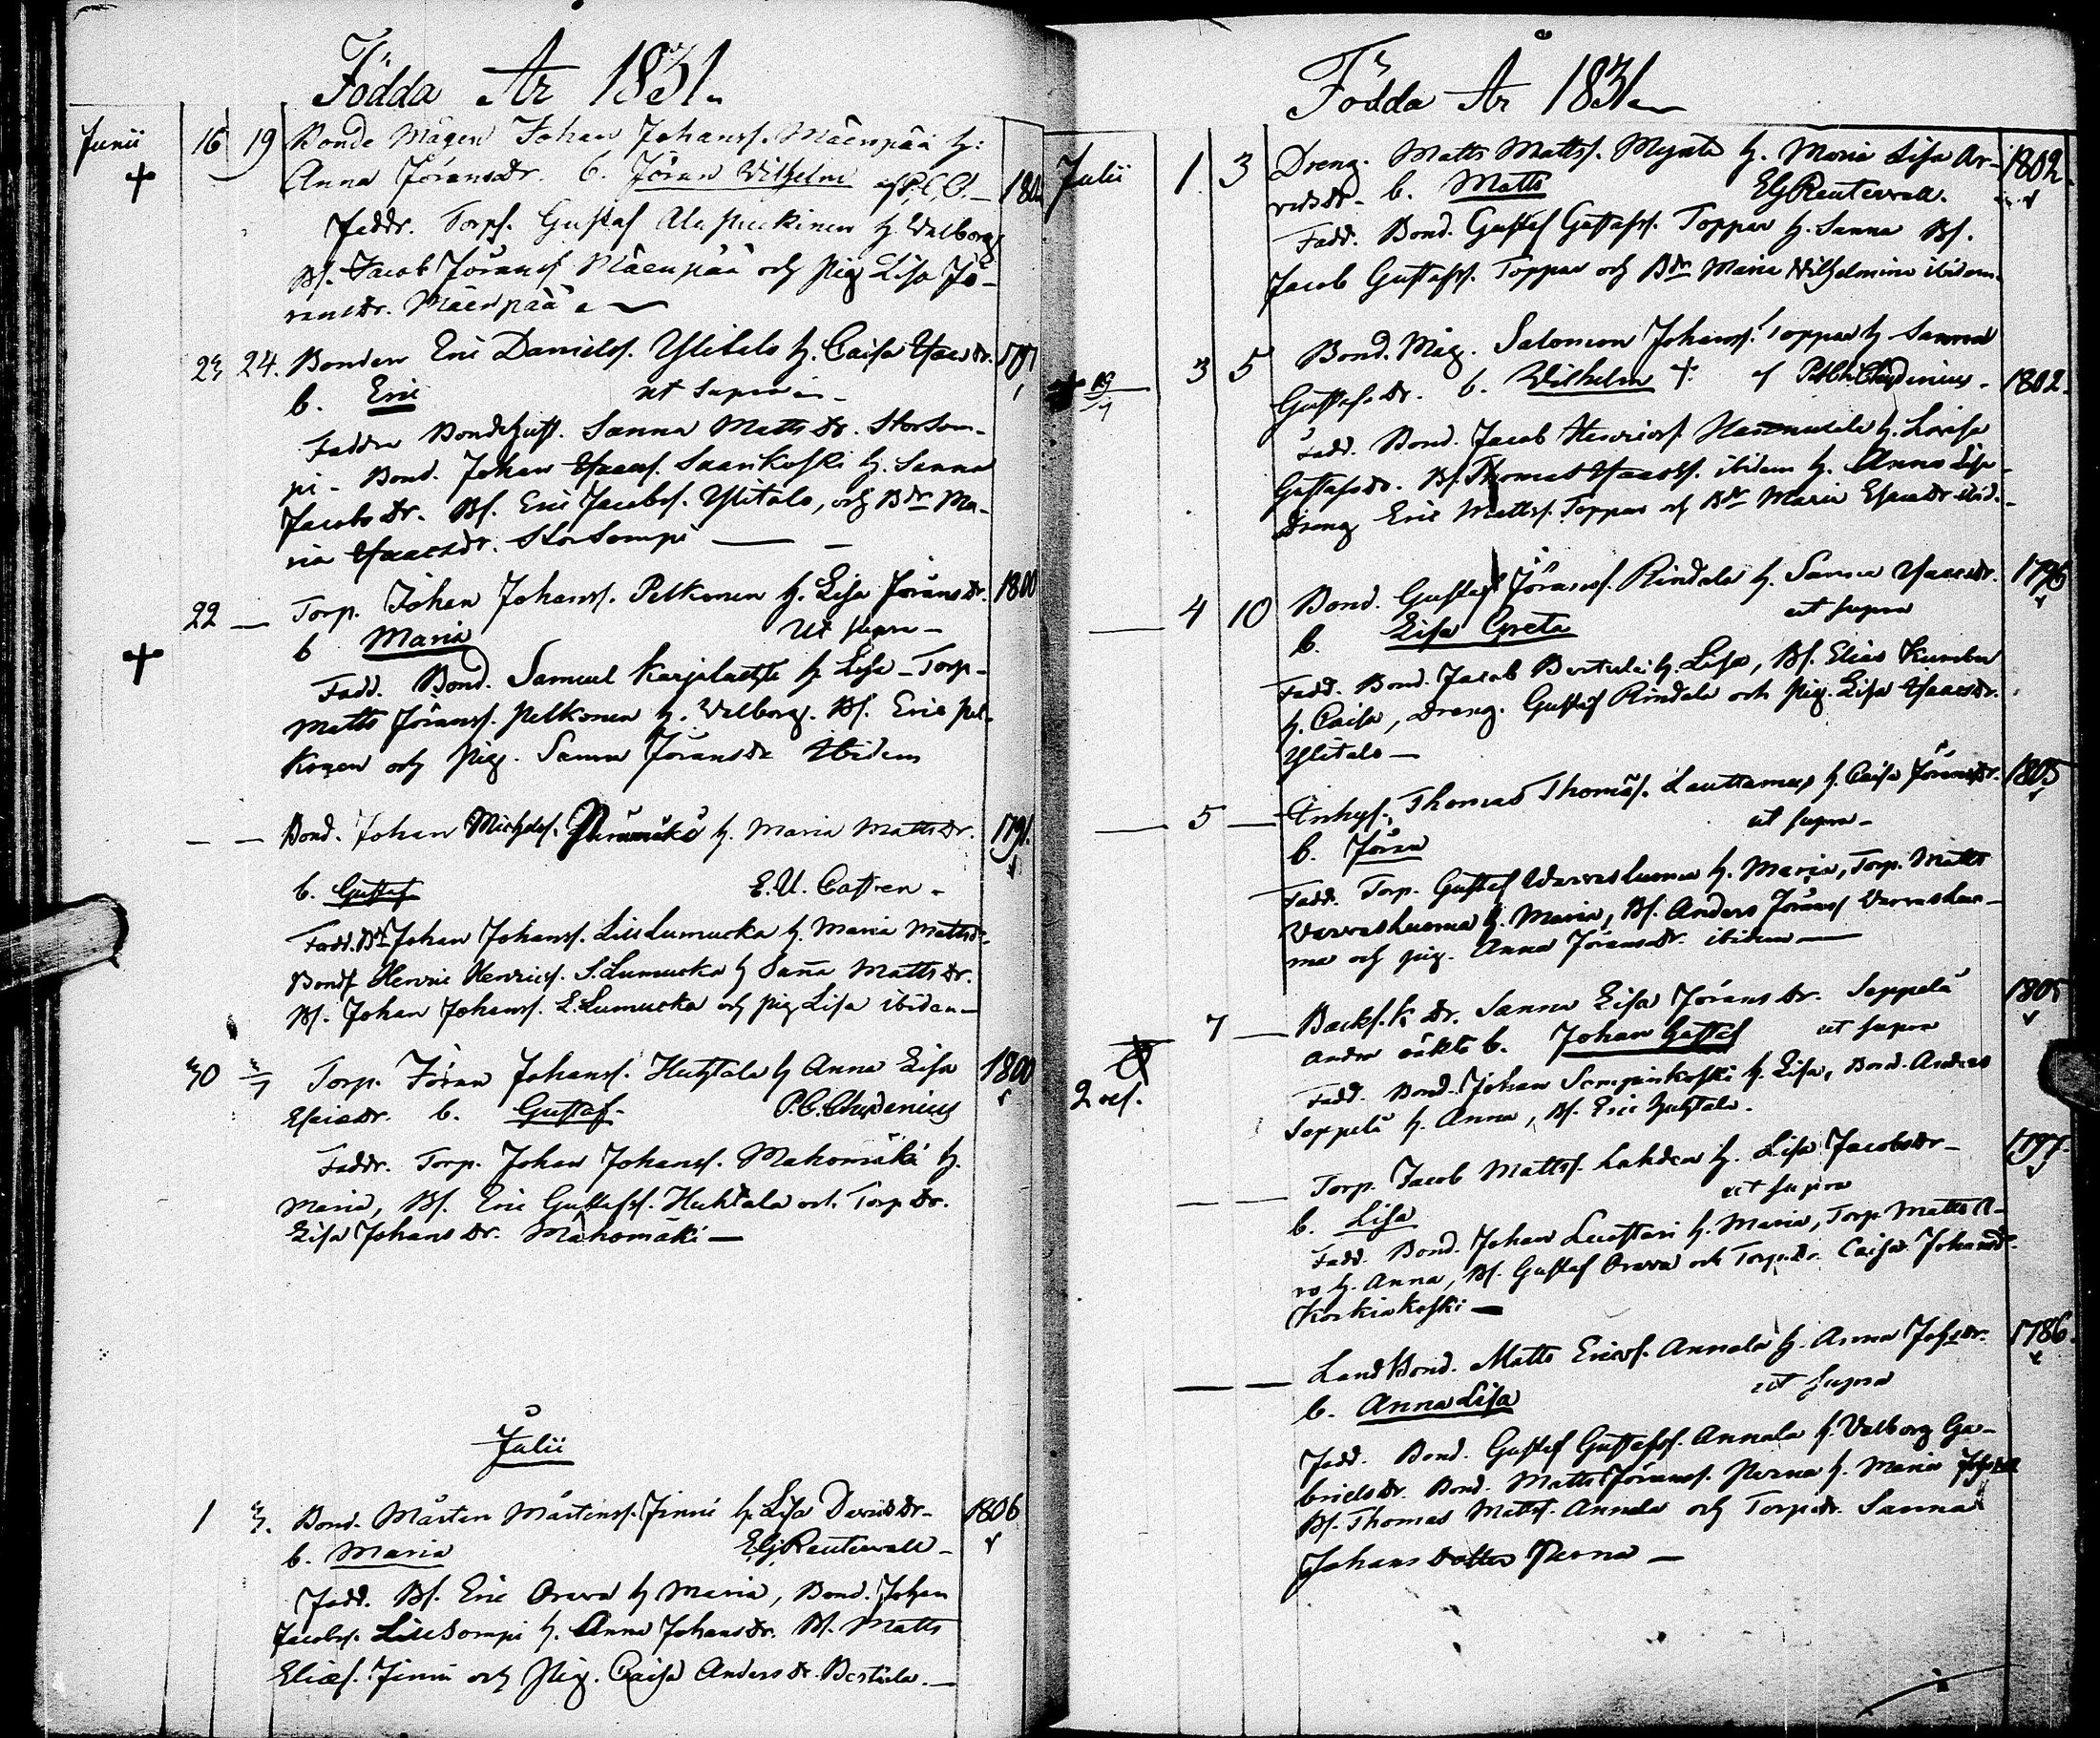 Födda År 1831
Junii 16 19 Bonde Mågen Johan Johanss. Mäenpää h:
Anna Jöransdr. b. Jöran Wilhelm af P.C.C.
Faddr. Torp. Gustaf Ala h. Walborg
Bs. Jacob Jöranss Mäenpää och pig Lisa Jö-
ransdr. Mäenpää
23 24. Bonden Eric Danielss. Ylitalo h. Caisa Isacsdr.
b. Eric ut supra
Faddra Bondehust. Sanna Mattsdr. Storsom-
pi - Bond. Johan Isacss. Saarikoski h. Sanna
Jacobsdr. Bs. Eric Jacobss. Ylitalo, och Bdr Ma-
ria Isacsdr. StorSompi
22 — Torp. Johan Johanss. Pelkonen h. Lisa Jöransdr. 1800
b Maria Ut supra
Fadd. Bond. Samuel Karjalachti h. Lisa - Torp-
Matts Jöranss. Pelkonen h. Walborg. Bs. Eric Pel-
konen och pig. Sanna Jöransdr Ibidem
— — Bond. Johan Michelss. h. Maria Mattsdr. 1791.
b. Gustaf E. U. Castren
Fadd. Johan Johanss. LillLumucka h. Maria Mattsdr.
Bonds Henric Henricss. S. Lumucka h Sana Mattsdr.
Bs. Johan Johanss. L. Lumucka och pig Lisa ibidem
30 3/7 Torp. Jöran Johanss. Huhtala h Anna Lisa 1800
Esaiædr. b. Gustaf P. C. Chydenius
Faddr. Torp. Johan Johanss. Mahomäki h.
Maria, Bs. Eric Gustafss. Huhtala och Torp Dr.
Lisa Johansdr. Mahomäki
Julii
1 3. Bond. Mårten Mårtenss. Finni h. Lisa Davidsdr. 1806
b. Maria ElgRautewall
Fadd. Bs. Eric Orawa h Maria, Bond. Johan
Jacobss. LillSompi h. Anna Johansdr. Bs. Matts
Eliæs. Finni och Pig. Caisa Andersdr. Bertula.
Födda År 1831
Julii 1. 3 Dreng. Matts Mattss. h. Maria Lisa Ar- 1802
vidsdr. b. Matts ElgRautewall.
Fadd. Bond. Gustaf Gustafss. Toppar h. Sanna Bs.
Jacob Gustafss. Toppar och Bdr Maria Wilhelmina ibidem.
3 5 Bond. Måg. Salomon Johanss. Toppar h Sanna
Gustafsdr. b. Wilhelm †. af Chydenius 1802.
19/7
Fadd. Bond. Jacob Henricss. h. Lovisa
Gustafsdr. Bs. Thomas Isacss. ibidem h. Anna Lisa
Dreng Eric Mattss. Toppar och Bdr Maria Esaiædr. ibid.
4 10 Bond. Gustaf Jöranss. Rindala h. Sanna Isacsdr. 1796
b. Lisa Greta ut supra
Fadd. Bond. Jacob Bertula h. Lisa, Bs. Elias
h. Caisa, Dreng. Gustaf Rindala och pig. Lisa Isacsdr.
Ylitalo
5 — Inhys. Thomas Thomass. Lauttamus h. Caisa Jöransdr. 1805
b. Jöran ut supra
Fadd. Torp. Gustaf Warrasluoma h. Maria, Torp. Matts
Warrasluoma h. Maria, Bs. Anders Jöranss Warrasluo-
ma och pig. Anna Jöransdr. ibidem
7 — Backs. Dr. Sanna Lisa Jöransdr. Seppelä 1805
andra oäkta b. Johan Gustaf ut supra
2 oä.
Fadd. Bond. Johan Sompinkoski h. Lisa, Bond. Anders
Seppelä h. Anna, Bs. Eric Huhtala.
— — Torp. Jacob Mattss. Lahden h. Lisa Jacobsdr. 1797.
b. Lisa ut supra
Fadd. Bond. Johan Luostari h. Maria, Torp. Matts A-
ro h. Anna, Bs. Gustaf Orawa och Torp.Dr. Caisa Johansdr.
Korkiakoski
— — LandBond. Matts Ericss. Annala h. Anna Johsdr. 1786.
b. Anna Lisa ut supra
Fadd. Bond. Gustaf Gustafss. Annala h. Valborg Ga-
brielsdr. Bond. Matts Jöranss. Perna h. Maria
Bs. Thomas Mattss. Annala och Torpdr. Sanna
Johans dotter Perna